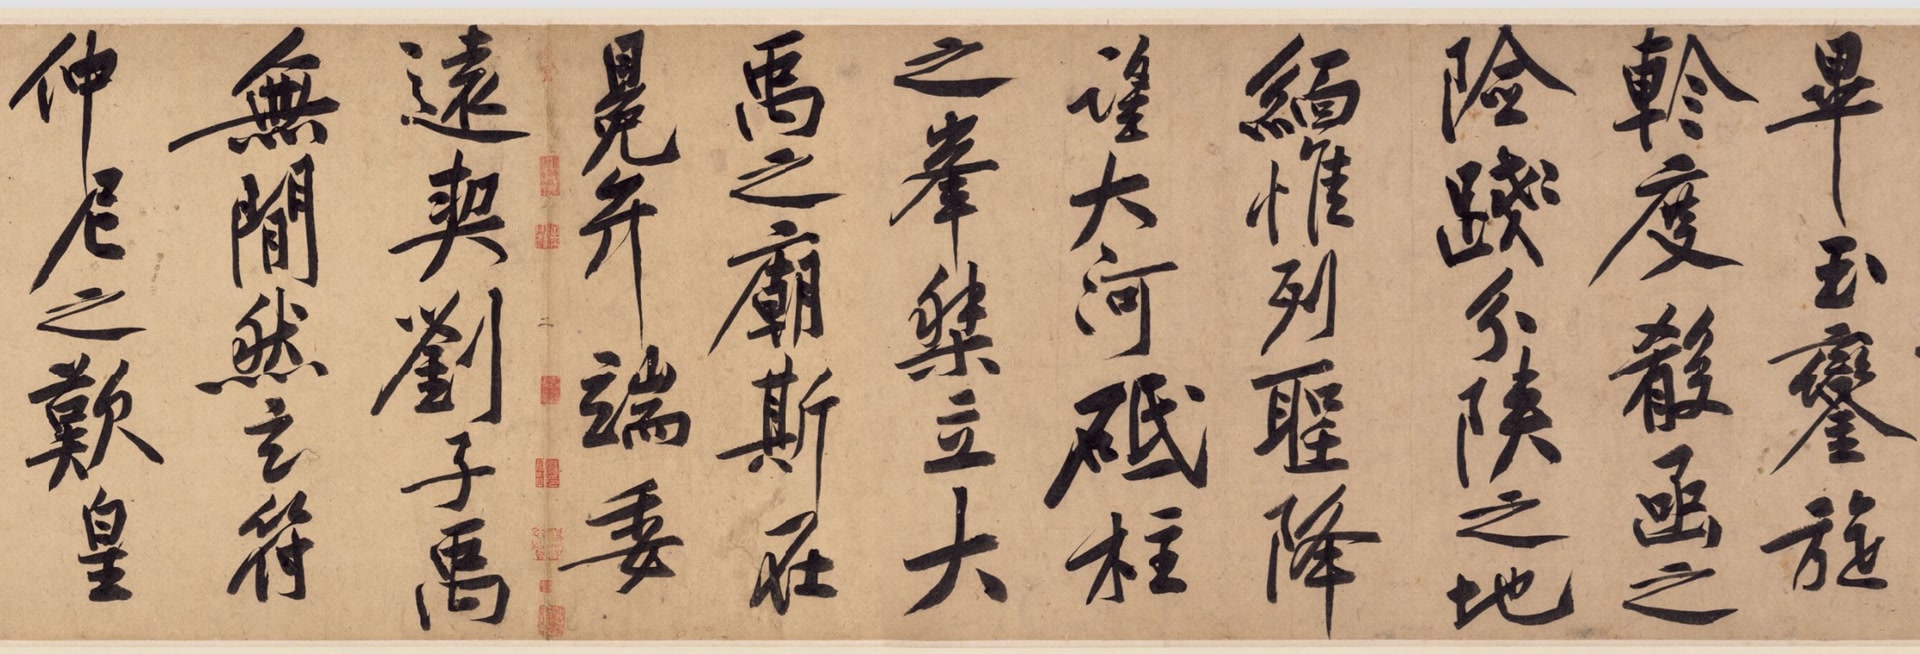 畢玉鑾旋
軫度殽函之
險踐分陝之地
緬惟列聖降
望大河砥柱
之峯桀立大
禹之廟斯在
冕弁端委
遠契劉子禹
無閒然玄符
仲尼之歎皇